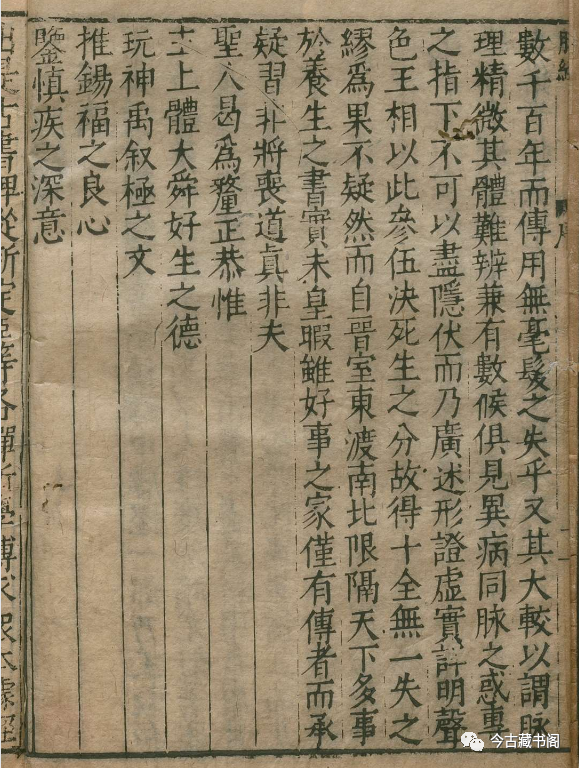 數千百年而傳用無毫髮之失乎又其大較以謂脉
理精微其體難辨兼有數候俱見異病同脉之惑專
之指下不可以盡隱伏而乃廣述形證虛實詳明聲
色王相以此參伍決死生之分故得十全無一失之
繆爲果不疑然而自晉室東渡南北限隔天下多事
於養生之書實未皇暇雖好事之家僅有傳者而承
疑習非將喪道眞非夫
聖人曷爲釐正恭惟
主上體大舜好生之德
玩神禹叙極之文
推錫福之良心
鑒慎疾之深意
今古藏书阁